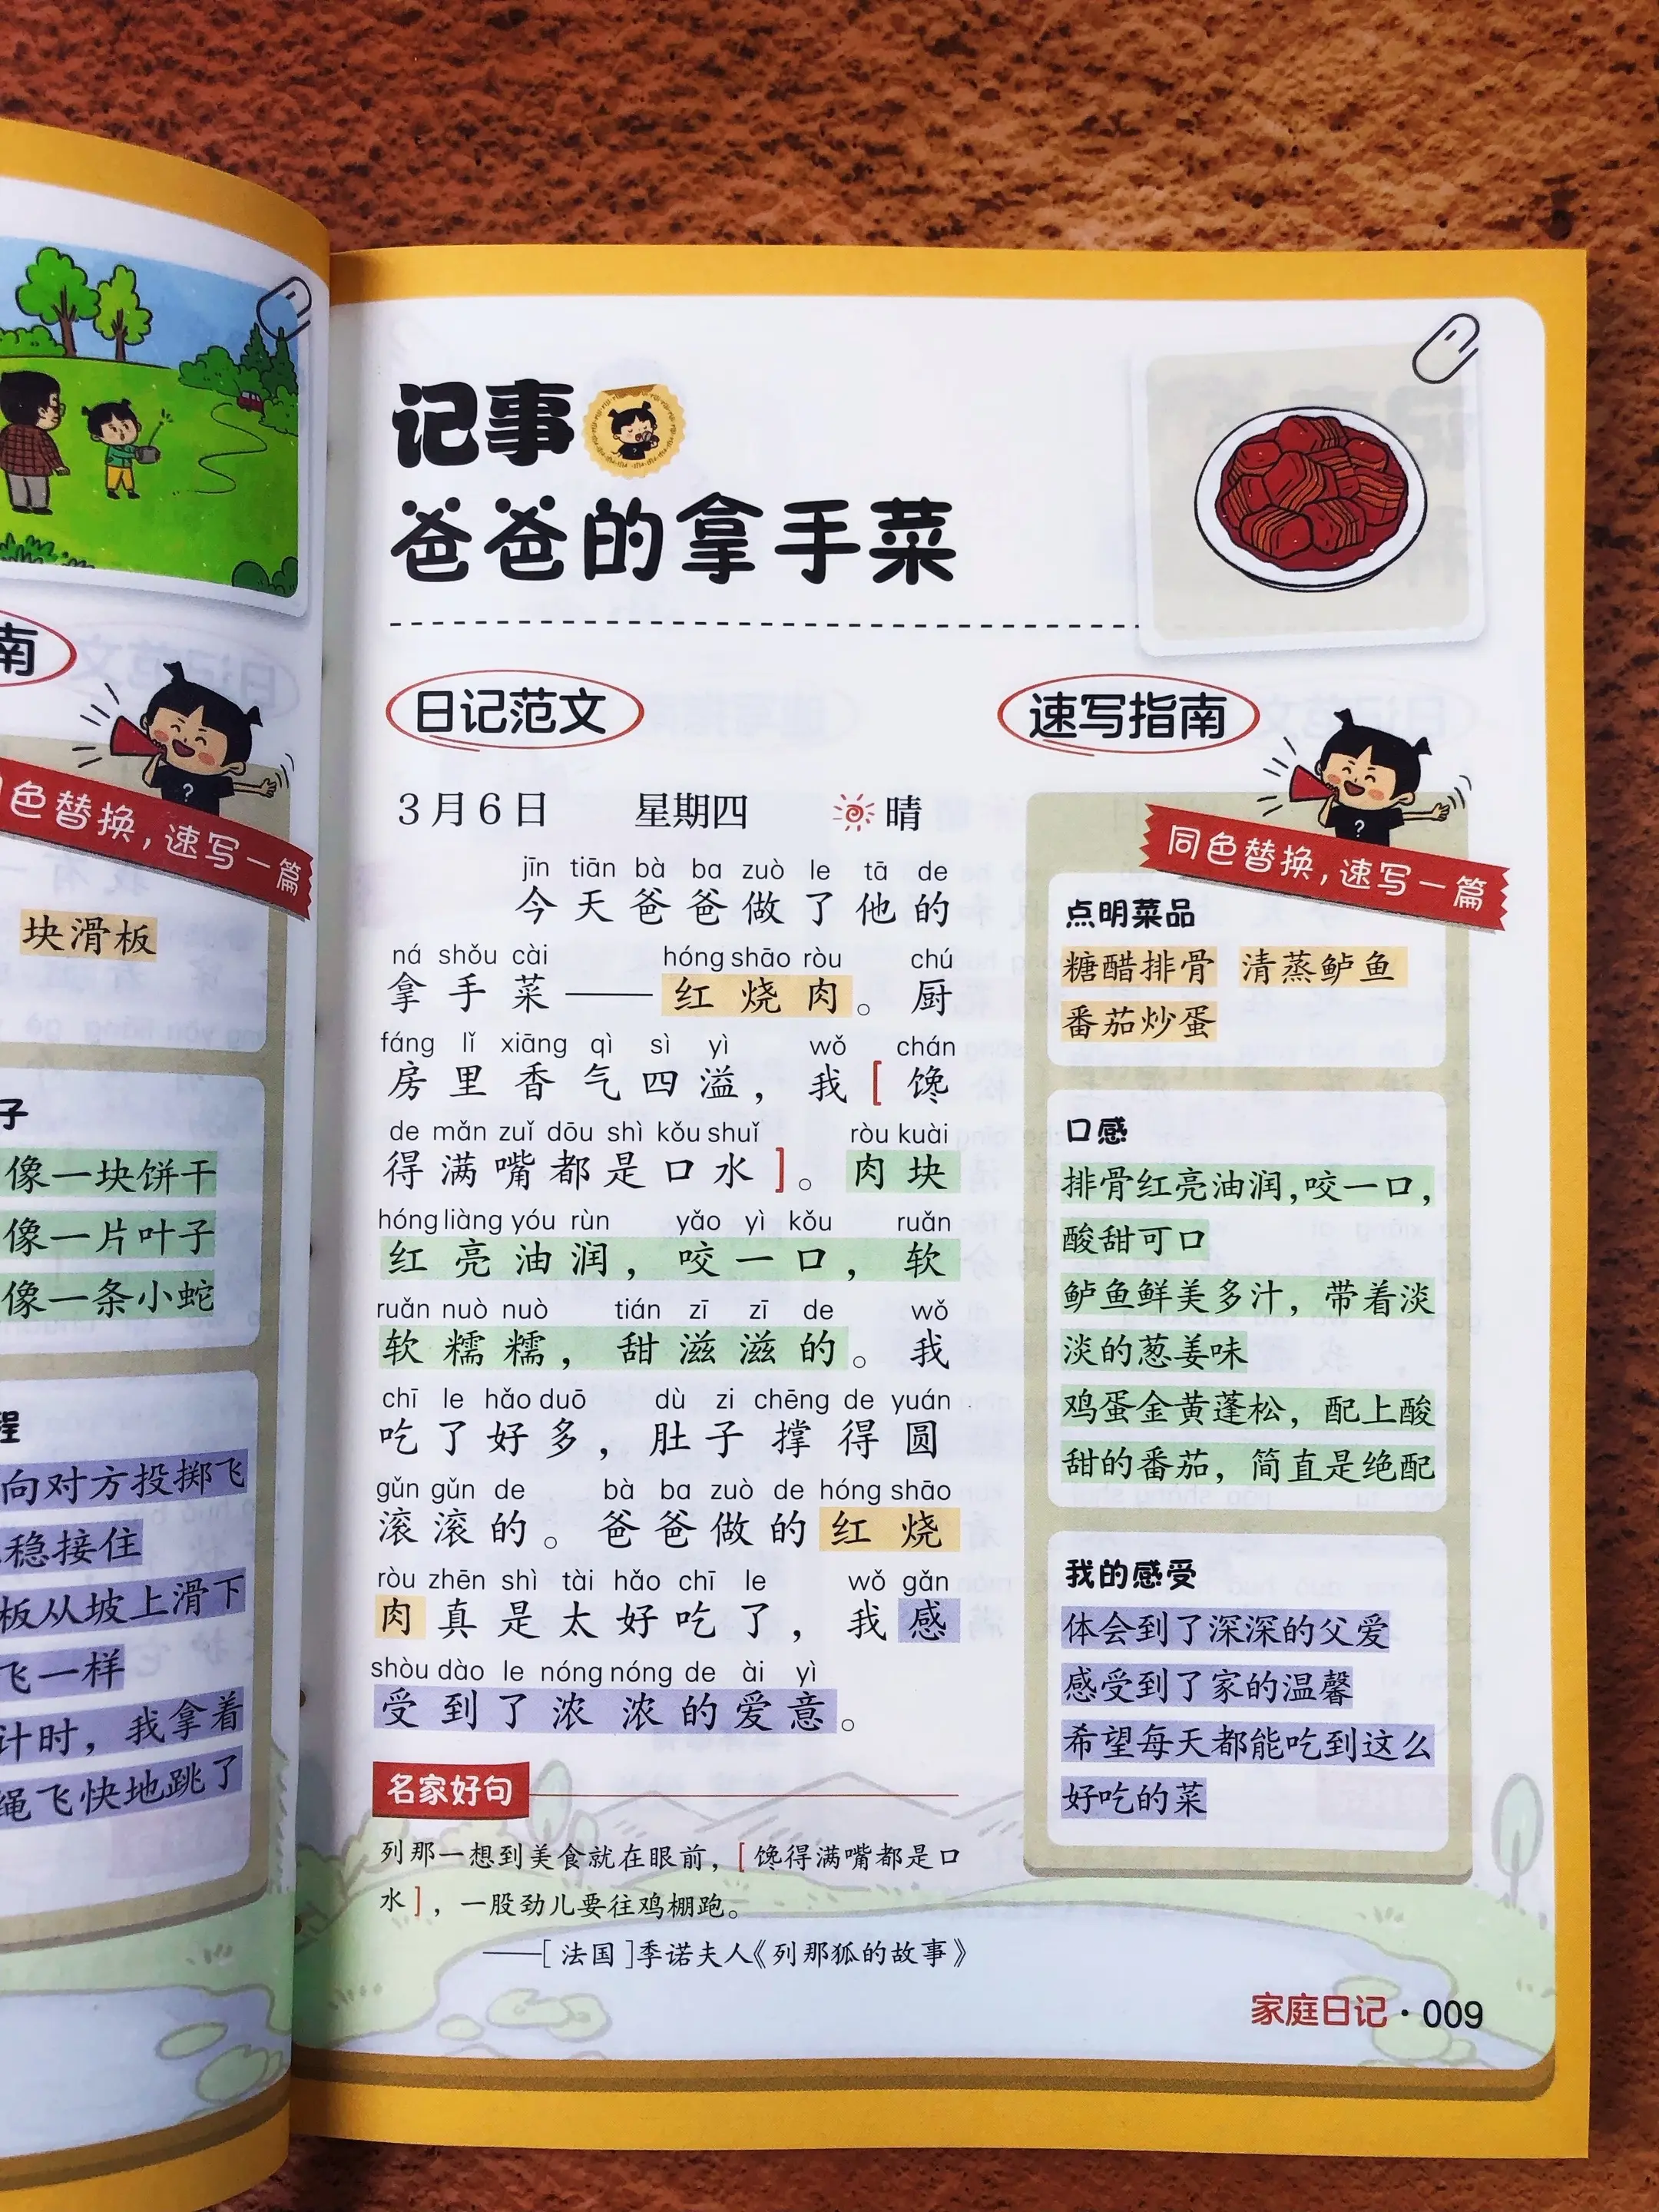 南
同色替换，速写一篇
块滑板
子
像一块饼干
像一片叶子
像一条小蛇
程
向对方投掷飞
稳接住
板从坡上滑下
飞一样
计时，我拿着
绳飞快地跳了
记事
爸爸的拿手菜
日记范文
3月6日 星期四 晴
jīn tiān bà ba zuò le tā de
今天爸爸做了他的
ná shǒu cài hóng shāo ròu chú
拿手菜——红烧肉。厨
fáng lǐ xiāng qì sì yì wǒ chán
房里香气四溢，我[馋
de mǎn zuǐ dōu shì kǒu shuǐ ròu kuài
得满嘴都是口水]。肉块
hóng liàng yóu rùn yǎo yì kǒu ruǎn
红亮油润，咬一口，软
ruǎn nuò nuò tián zī zī de wǒ
软糯糯，甜滋滋的。我
chī le hǎo duō dù zi chēng de yuán
吃了好多，肚子撑得圆
gǔn gǔn de bà ba zuò de hóng shāo
滚滚的。爸爸做的红烧
ròu zhēn shì tài hǎo chī le wǒ gǎn
肉真是太好吃了，我感
shòu dào le nóng nóng de ài yì
受到了浓浓的爱意。
名家好句
列那一想到美食就在眼前，[馋得满嘴都是口
水]，一股劲儿要往鸡棚跑。
——[法国]季诺夫人《列那狐的故事》
速写指南
同色替换，速写一篇
点明菜品
糖醋排骨 清蒸鲈鱼
番茄炒蛋
口感
排骨红亮油润，咬一口，
酸甜可口
鲈鱼鲜美多汁，带着淡
淡的葱姜味
鸡蛋金黄蓬松，配上酸
甜的番茄，简直是绝配
我的感受
体会到了深深的父爱
感受到了家的温馨
希望每天都能吃到这么
好吃的菜
家庭日记·009